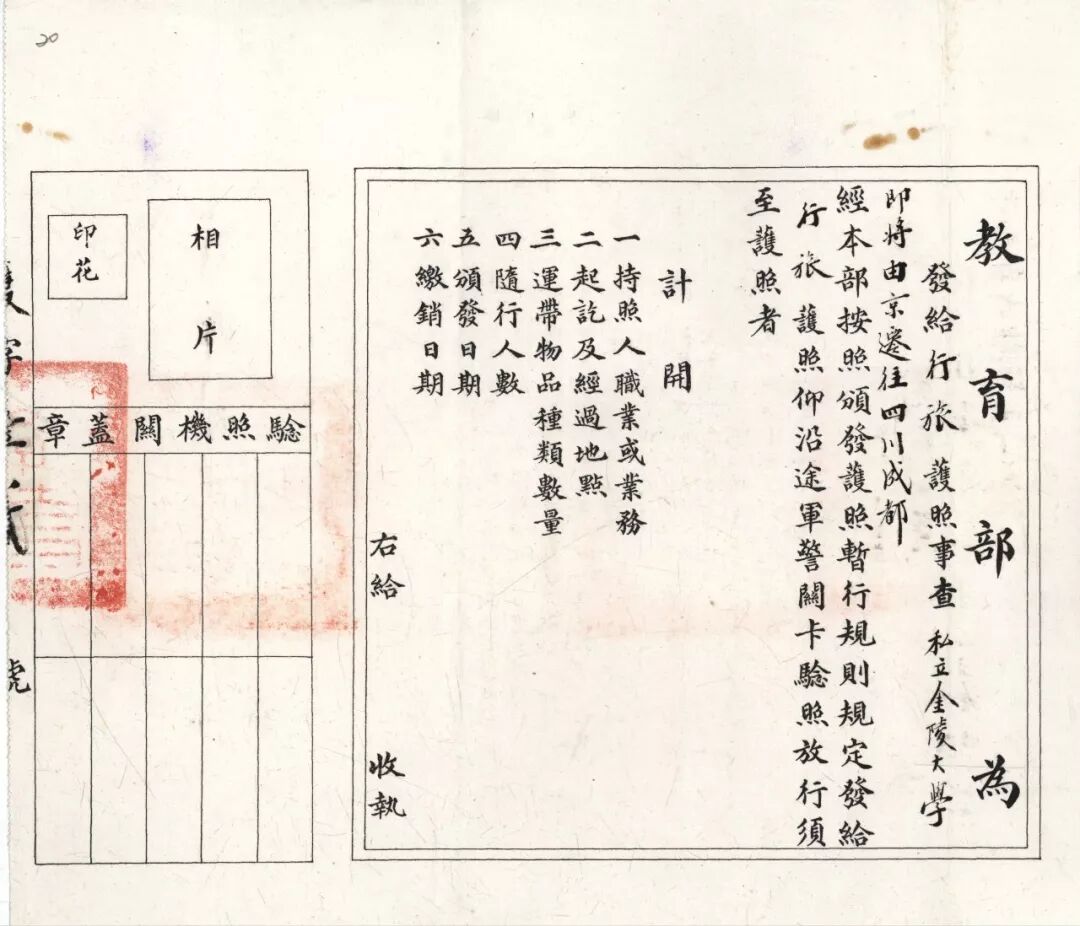 教育部為
發給行旅護照事查私立金陵大學
即將由京遷往四川成都
經本部按照頒發護照暫行規則規定發給
行旅護照仰沿途軍警關卡驗照放行須
至護照者
計開
一持照人職業或業務
二起訖及經過地點
三運帶物品種類數量
四隨行人數
五頒發日期
六繳銷日期
右給 收執
相片
印花
驗照機關蓋章
字 號
20